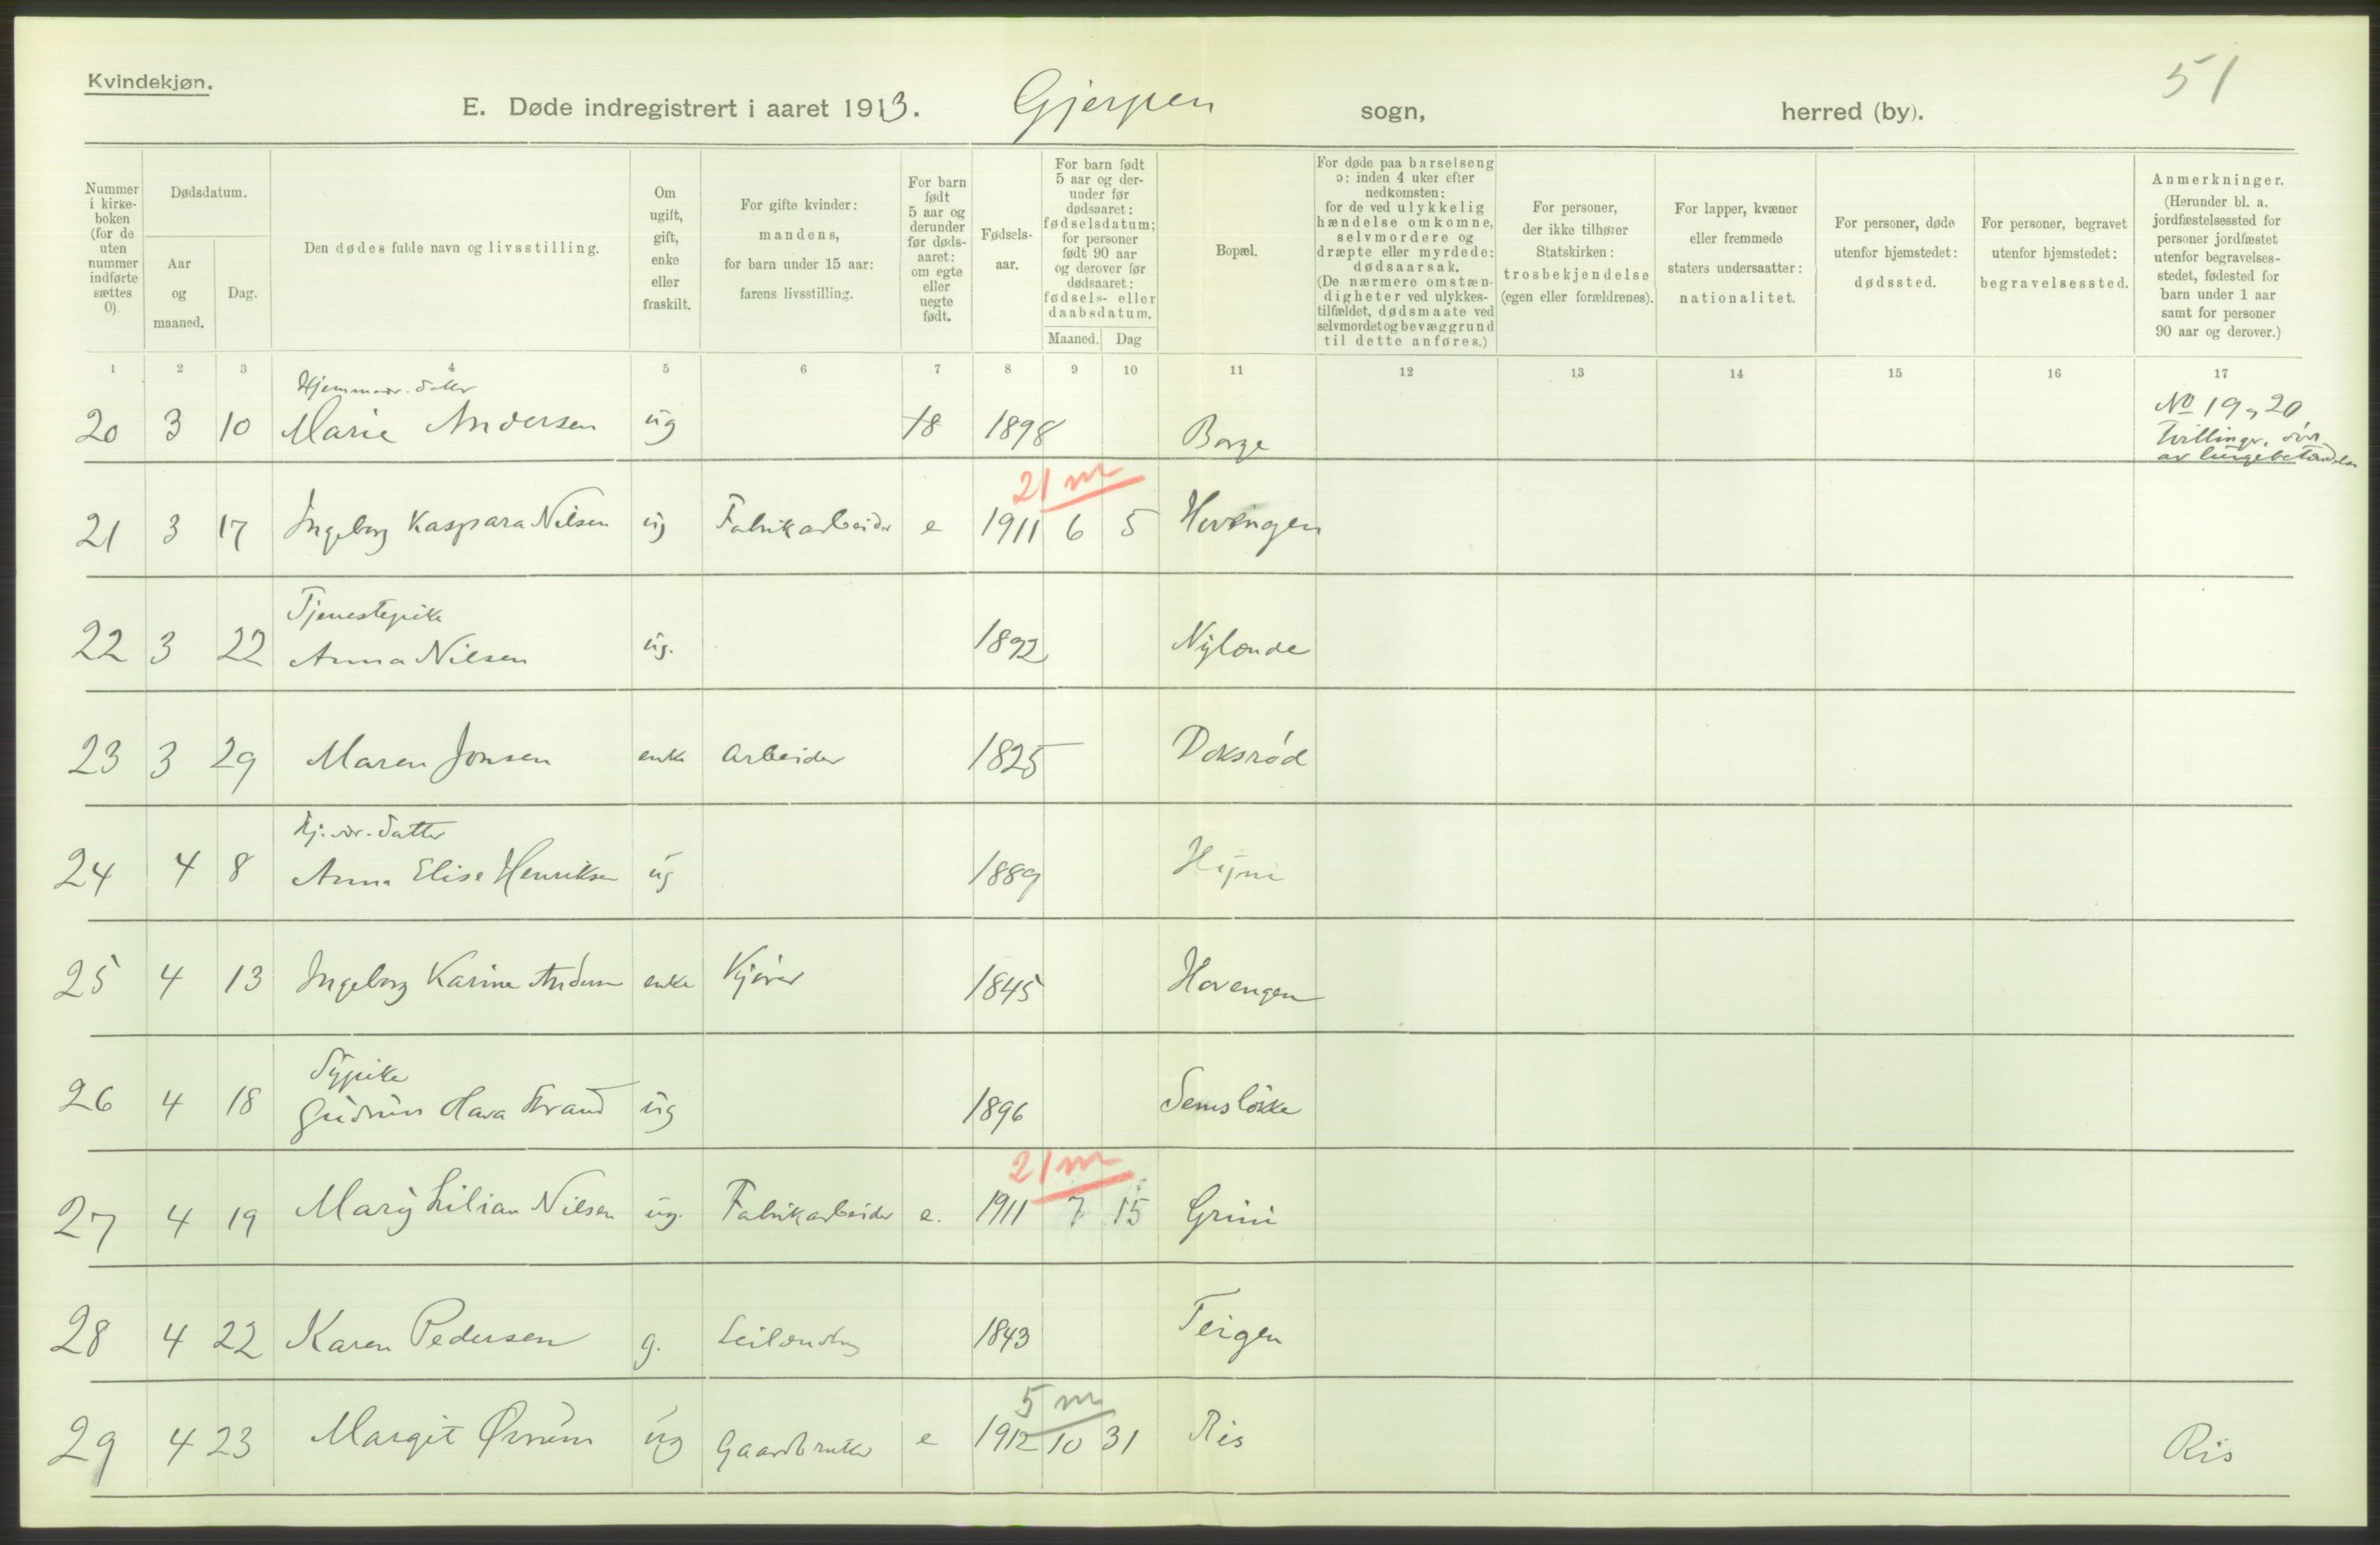 Kvindekjøn.
51
E. Døde indregistrert i aaret 1913. Gjerpen sogn, herred (by).
Nummer i kirkeboken (for de uten nummer indførte sættes 0).
Dødsdatum.
Aar og maaned.
Dag.
Den dødes fulde navn og livsstilling.
Om ugift, gift, enke eller fraskilt.
For gifte kvinder: mandens, for barn under 15 aar: farens livsstilling.
For barn født 5 aar og derunder før dødsaaret: om egte eller uegte født.
Fødselsaar.
For barn født 5 aar og derunder før dødsaaret: fødselsdatum; for personer født 90 aar og derover før dødsaaret: fødsels- eller daabsdatum.
Maaned. Dag
Bopæl.
For døde paa barselseng ɔ: inden 4 uker efter nedkomsten: for de ved ulykkelig hændelse omkomne, selvmordere og dræpte eller myrdede: dødsaarsak. (De nærmere omstændigheter ved ulykkestilfældet, dødsmaate ved selvmordet og bevæggrund til dette anføres.)
For personer, der ikke tilhører Statskirken: trosbekjendelse (egen eller forældrenes).
For lapper, kvæner eller fremmede staters undersaatter: nationalitet.
For personer, døde utenfor hjemstedet: dødssted.
For personer, begravet utenfor hjemstedet: begravelsessted.
Anmerkninger. (Herunder bl. a. jordfæstelsessted for personer jordfæstet utenfor begravelsesstedet, fødested for barn under 1 aar samt for personer 90 aar og derover.)
1 2 3 4 5 6 7 8 9 10 11 12 13 14 15 16 17
Hjemmevr. datter
20 3 10 Marie Andersen ug 18 1898 Borge No 19 & 20
Tvillinger, død
av lungebetændelse
21 m
21 3 17 Ingeborg Kaspara Nilsen ug Fabrikarbeider e 1911 6 5 Hovengen
Tjenestepike
22 3 22 Anna Nilsen ug. 1892 Nylænde
23 3 29 Maren Jonsen enke arbeider 1825 Doksrød
Hj.vr. datter
24 4 8 Anna Elise Henriksen ug 1889 Hyni
25 4 13 Ingeborg Karine Andersen enke Kjører 1845 Hovengen
Sypike
26 4 18 Gudrun Hava Strand ug 1896 Semsløkke
21 m
27 4 19 Mary Lilian Nilsen ug. Fabrikarbeider e. 1911 7 15 Grini
28 4 22 Karen Pedersen g. Leilænding 1843 Teigen
5 m
29 4 23 Margit Ørnum ug Gaardbruker e 1912 10 31 Ris Ris